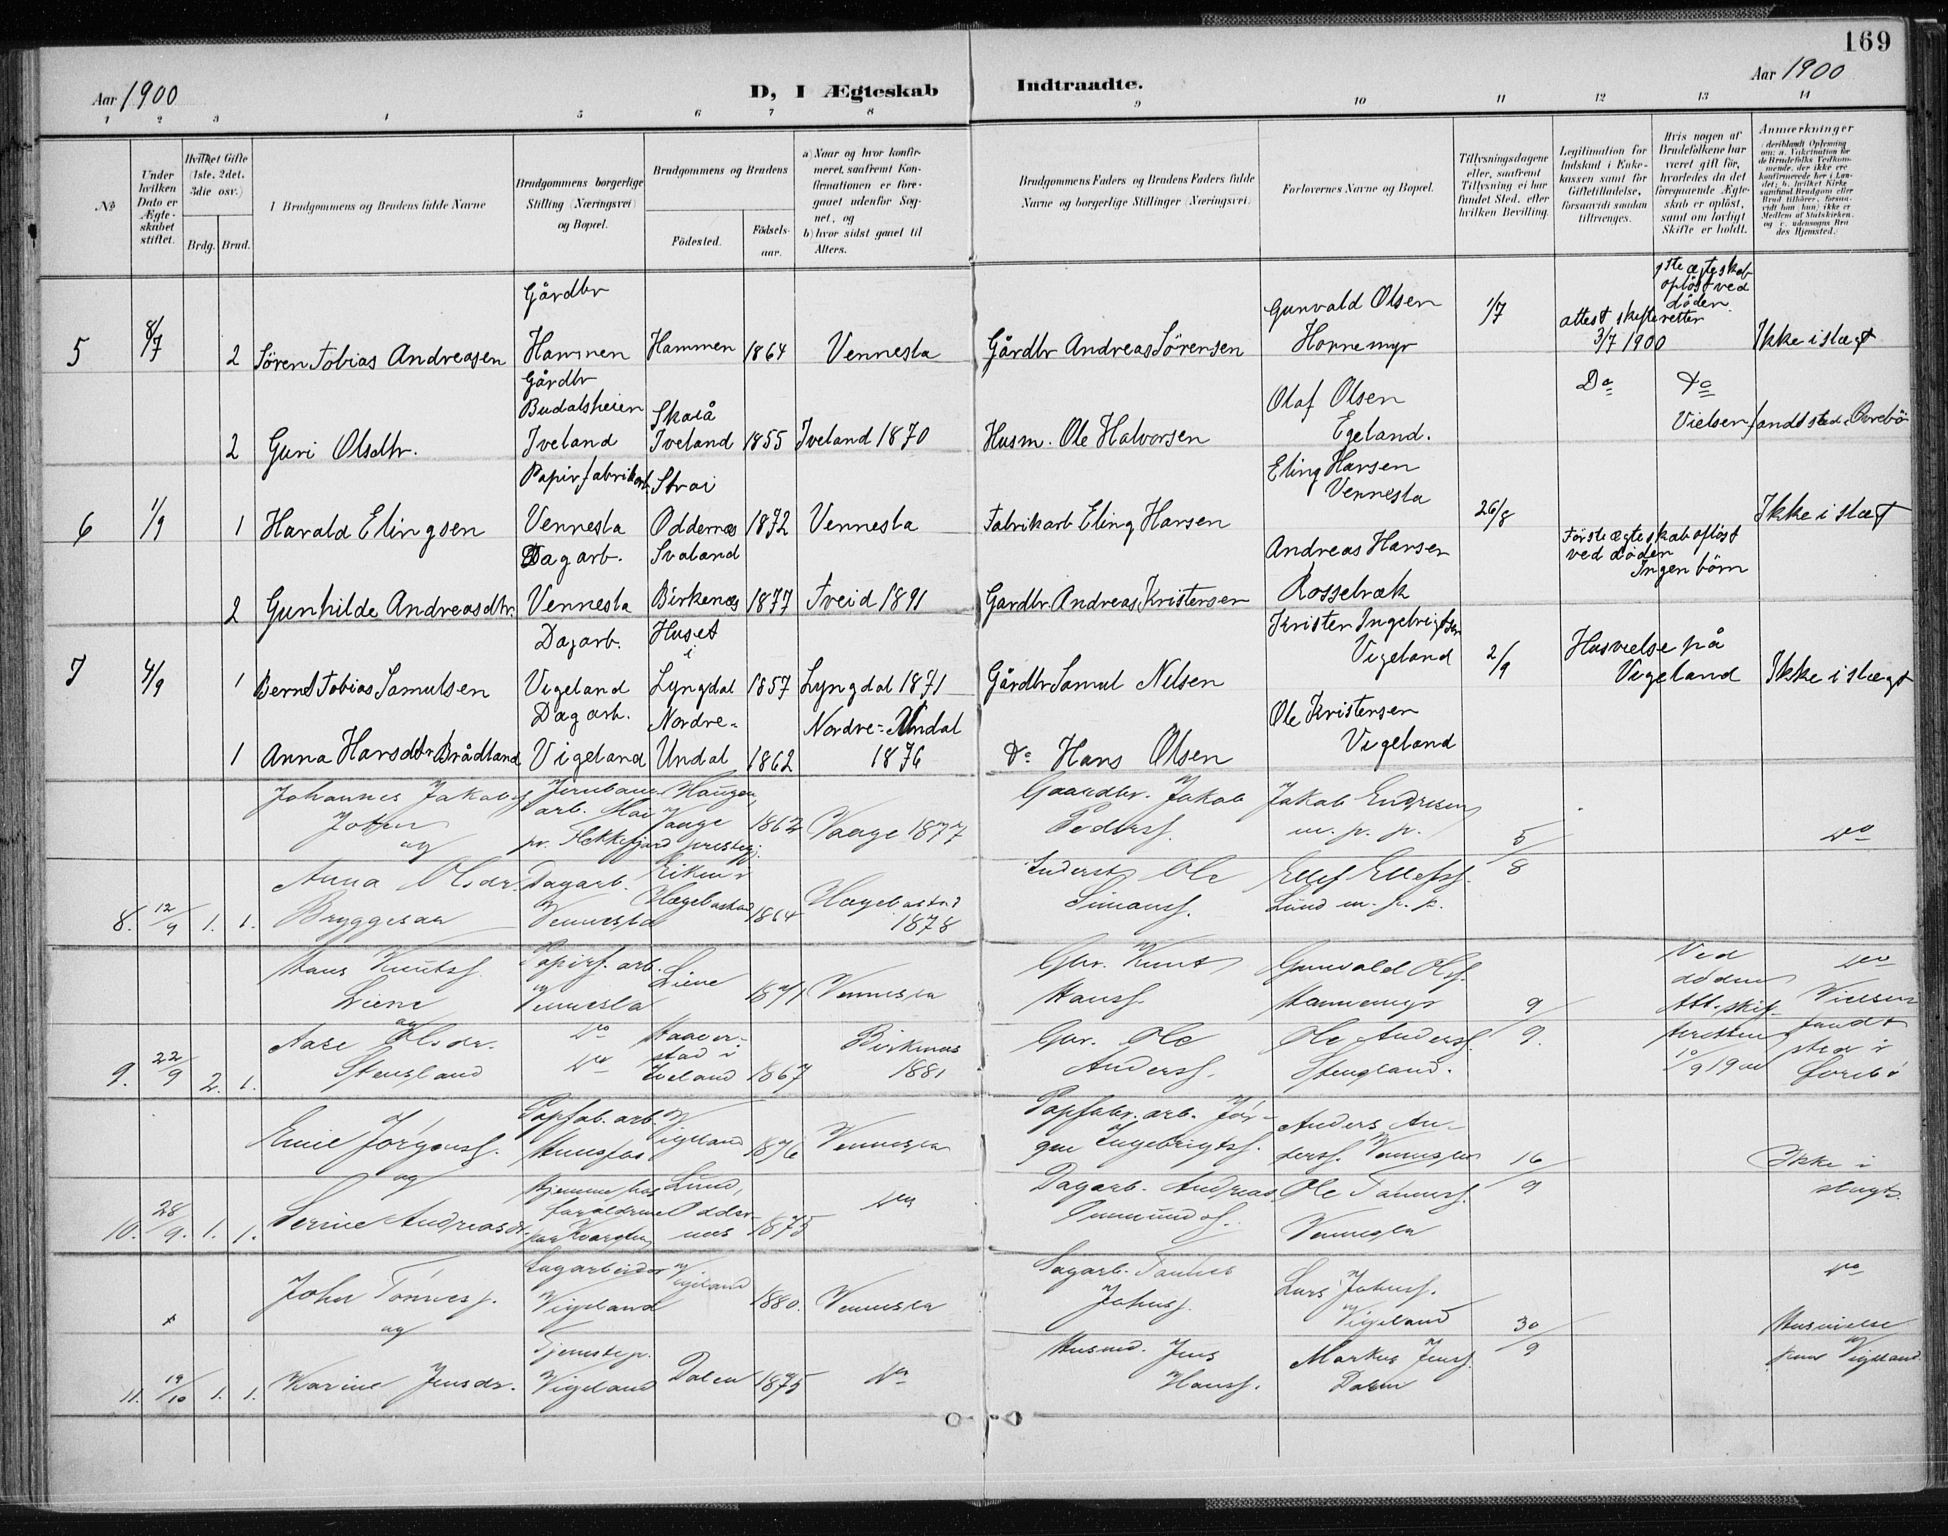 169
Aar 1900
D, I Ægteskab Indtraadte.
Aar 1900
1 2 3 4 5 6 7 8 9 10 11 12 13 14
№
Under hvilken Dato er Ægteskabet stiftet.
Hvilket Gifte (1ste, 2det, 3die osv.)
Brdg. Brud.
Brudgommens og Brudens fulde Navne
Brudgommens borgerlige Stilling (Næringsvei) og Bopæl.
Brudgommens og Brudens
Födested.
Födselsaar.
a) Naar og hvor konfirmeret, saafremt Konfirmationen er foregaaet udenfor Sognet, og
b) hvor sidst gaaet til Alters.
Brudgommens Faders og Brudens Faders fulde Navne og borgerlige Stillinger (Næringsvei)
Forlovernes Navne og Bopæl.
Tillysningsdagene eller, saafremt Tillysning ei har fundet Sted, efter hvilken Bevilling.
Legitimation for Indskud i Enkekassen samt for Giftetilladelse, forsaavidt saadan tiltrænges.
Hvis nogen af Brudefolkene har været gift för, hvorledes da det foregaaende Ægteskab er oplöst, samt om lovligt Skifte er holdt.
Anmærkninger
5 8/7 2 Søren Tobias Andreasen Gårdbr Hammen Hammen 1864 Vennesla Gårdbr Andreas Sörensen Gunvald Olsen Hornemyr 1/7 attest skifteretten 3/7 1900 1ste ægteskab opløst ved døden Ikke i slægt
2 Guri Olsdtr. Gårdbr Budalsheien Iveland Skaiå Iveland 1855 Iveland 1870 Husm. Ole Halvorsen Olaf Olsen Egeland. Do Do Vielsen fandt sted i Øvrebö
6 1/9 1 Harald Elingsen Papirfabrikarb Vennesla Strai Oddernæs 1872 Vennesla Fabrikarb Eling Hansen Eling Hansen Vennesla 26/8 Ikke i slægt
2 Gunhilde Andreasdtr. Dagarb. Vennesla Svaland Birkenæs 1877 Tveid 1891 Gardbr. Andreas Kristensen Andreas Hansen Rossebræk Første ægteskab opløst ved døden Ingen børn
7 4/9 1 Bernt Tobias Samulsen Dagarb. Vigeland Huset i Lyngdal 1857 Lyngdal 1871 Gårdbr Samul Nilsen Kristen Ingebrigtsen Vigeland 2/9 Husvielse på Vigeland Ikke i slægt
1 Anna Hansdtr Brådland Dagarb. Vigeland Nordre-Undal 1862 Nordre-Undal 1876 Do Hans Olsen Ole Kristensen Vigeland
Johannes Jakobs. og Jernbanearb. Vaage 1862 Vaage 1877 Gaardbr. Jakob Peders. Jakob Endresen m. p. p. 5/8 Do
8. 12/9 1. 1. Anna Olsdr. Bryggesaa Dagarb. Vennesla Eiken i Hægebostad 1864 Hægebostad 1878 Ole Simons. Ellef Ellefs. Lund m. p. p.
Hans Knuts. Liene og Papirf. arb. Vennesla Liene 1871 Vennesla Gbr. Knut Hans. Gunvald Ols. Hannemyr 9/9. Ved döden Att. skifteretten 10/9 1900 Do Vielsen fandt sted i Øvrebö
9. 22/9 2. 1. Aase Olsdr. Stensland Do Do i Iveland 1867 Birkenæs 1881 Gbr. Ole Anders. Ole Anders. Stensland.
Emil Jörgens. og Papfab. arb. Hunsfos Vigeland 1876 Vennesla Papfabr. arb. Jörgen Ingebrigts. Anders Anders. Vennesla 16/9 Ikke i slægt.
10. 28/9. 1. 1. Serine Andreasdr. Hjemme hos forældrene paa Lund, Oddernes 1875 Do Dagarb. Andreas Ole Tønnes. Vennesla
John Tönnes. og Sagarbeider Vigeland Vigeland 1880. Vennesla Sagarb. Tönnes Johns. Lars Johns. Vigeland 30/9 Do Husvielse paa Vigeland
11. 19/10 1. 1. Karine Jensdr. Tjenestep. Vigeland Dalen 1875 Do Husmd. Jens Hans. Markus Jens. Dalen